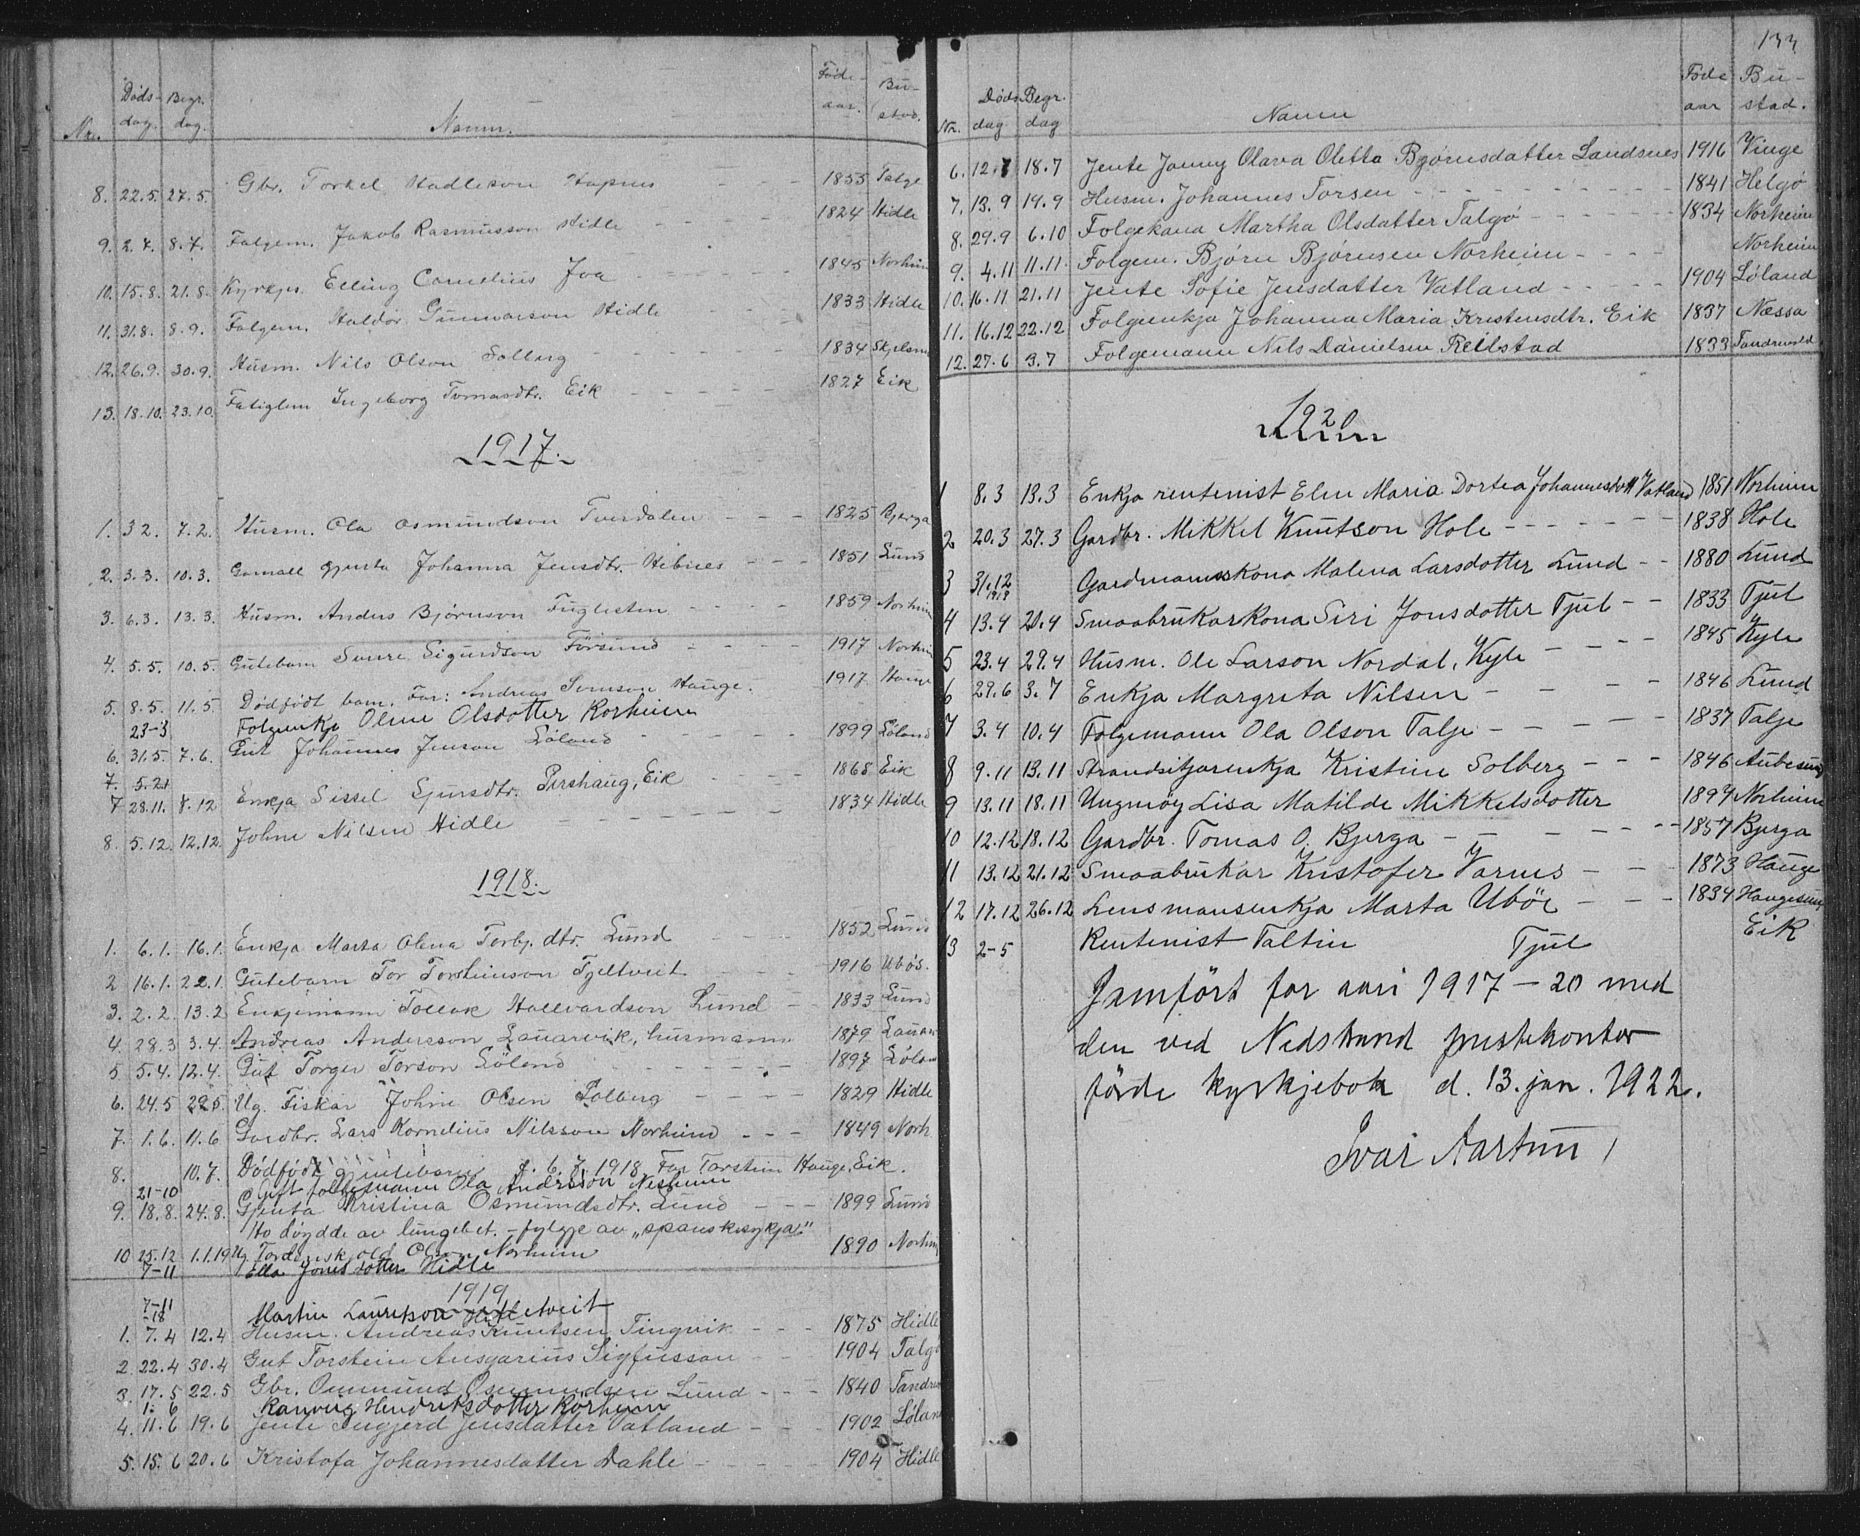 Nr. Döds- dag. Begr. dag. Namn. Föde- aar. Bu- stad.
8. 22.5. 27.5. Gbr. Torkel Hadleson Hapnes 1855 Talge
9. 2.7. 8.7. Folgem. Jakob Rasmusson Hidle 1824 Hidle
10. 15.8. 21.8. Kyrkjes. Elling Cornelius Joa 1845 Norheim
11. 31.8. 8.9. Folgem. Haldor Gunnarson Hidle 1833 Hidle
12. 26.9. 30.9. Husm. Nils Olson Solberg 1834
13. 18.10. 23.10. Fatiglem Ingeborg Tomasdtr. Eik 1827 Eik
1917.
1. 3 2. 7.2. Husm. Ola Osmundson Tverdalen 1825 Bjerga
2. 3.3. 10.3. Gamall gjenta Johanna Jensdtr. Hibnes 1851 Lund
3. 6.3. 13.3. Husm. Anders Bjørnson Fuglesten 1859 Norheim
4. 5.5. 10.5. Gutebarn Sverre Sigurdson Førsund 1917 Norheim
5. 8.5. 11.5. Dödfödt barn. Far: Andreas Simson Hauge. 1917 Hauge
23-3 Folgeenkje Oline Olsdotter Norheim
6. 31.5. 7.6. Gut Johannes Jenson Løland 1899 Løland
7. 5.21
7 28.11. 8.12 Enkja Sissel Sjursdtr. Pershaug, Eik 1868 Eik
8. 5.12. 12.12. Johne Nilsen Hidle 1834 Hidle
1918.
1. 6.1. 16.1. Enkja Marta Olena Torbj.dtr. Lund 1852 Lund
2 16.1. 22.1. Gutebarn Tor Torsteinson Tjeltveit 1916 Ubøs.
3. 2.2. 13.2 Enkjemann Tollak Hallvardson Lund 1833 Lund
4. 28.3 3.4. Andreas Anderson Lauarvik, husmann 1879
5 5.4. 12.4. Gut Torger Torson Løland 1897 Løland
6. 24.5 29.5. Ug. Fiskar Johne Olsen Solberg 1829 Hidle
7. 1.6. 11.6. Gardbr. Lars Kornelius Nilsson Norheim 1849 Norh
8. 10.7. Dödfödt gjentebarn f. 6.7. 1918. Far Torstein Hauge, Eik.
21-10 Gift folgemann Ola Andersson Nesheim
9. 18.8. 24.8. Gjenta Kristina Osmundsdtr. Lund 1899 Lund
Ho døydde av lungebet. - fylgje av „spanskesykja"
10 25.12 1.1.19 Ug. Tordenskjold Olson Norheim 1890 Norheim
7-11 Ella Jonesdotter Hidle
1919
7-11 -18 Martin Lauritson Hidletveit
1. 7.4 12.4 Husm. Andreas Knutsen Tingvik 1875 Hidle
2 22.4 30.4 Gut Torstein Ansgarius Sigfusson 1904 Talgø
3. 17.5 22.5 Gbr. Ommund Osmundsen Lund 1840
1. 6 Ranveig Hendriksdotter Norheim
4. 11.6 19.6 Jente Ingjerd Jensdatter Vatland 1902 Løland
5. 15.6 20.6 Kristofa Johannesdatter Dahle 1904 Hidle
133
Nr. Døds dag Begr. dag Namn Föde aar Bu- stad.
6. 12.7 18.7 Jente Jenny Olava Oletta Bjørnsdatter Landsnes 1916 Vinge
7. 13.9 19.9 Husm. Johannes Torsen 1841 Helgø
8. 29.9 6.10 Folgekona Martha Olsdatter Talgø 1834 Norheim
9. 4.11 11.11. Folgem. Bjørn Bjørnsen Norheim Norheim
10. 16.11 21.11 Jente Sofie Jensdatter Vatland 1904 Løland
11. 16.12 22.12 Folgeenkja Johanna Maria Kristensdtr. Eik 1837 Næssa
12. 27.6 3.7 Folgemann Nils Danielsen Reilstad 1833 Tandrevold
1920
1 8.3 13.3 Enkja rentenist Elen Maria Dortea Johannesdott Vatland 1851 Norheim
2 20.3 27.3 Gardbr. Mikkel Knutson Hole 1838 Hole
3 31.12 1919 Gardmannskona Malena Larsdotter Lund 1880 Lund
4 13.4 20.4 Smaabrukarkona Siri Jonsdotter Tjul 1833 Tjul
5 23.4 29.4 Husm. Ole Larson Nordal, Kyle 1845 Kyle
6 29.6 3.7 Enkja Margreta Nilsen 1846 Lund
7 3.4 10.4 Folgemann Ola Olson Talje 1837 Talje
8 9.11 13.11 Strandsitjarenkja Kristine Solberg 1846 Aubesund
9 13.11 18.11 Ungmøy Lisa Matilde Mikkelsdotter 1894 Norheim
10 12.12 18.12 Gardbr. Tomas O. Bjerga 1857 Bjerga
11 13.12 21.12 Smaabrukar Kristofer Varnes 1873 Hauge
12 17.12 26.12 Lensmansenkja Marta Uböe 1834 Haugesund
13 2-5 Rentenist Taltin Tjul Eik
Jamfört for aari 1917 - 20 med
den ved Nedstrand prestekontor
förde kyrkjebok d. 13. jan. 1922.
Ivar Aartun